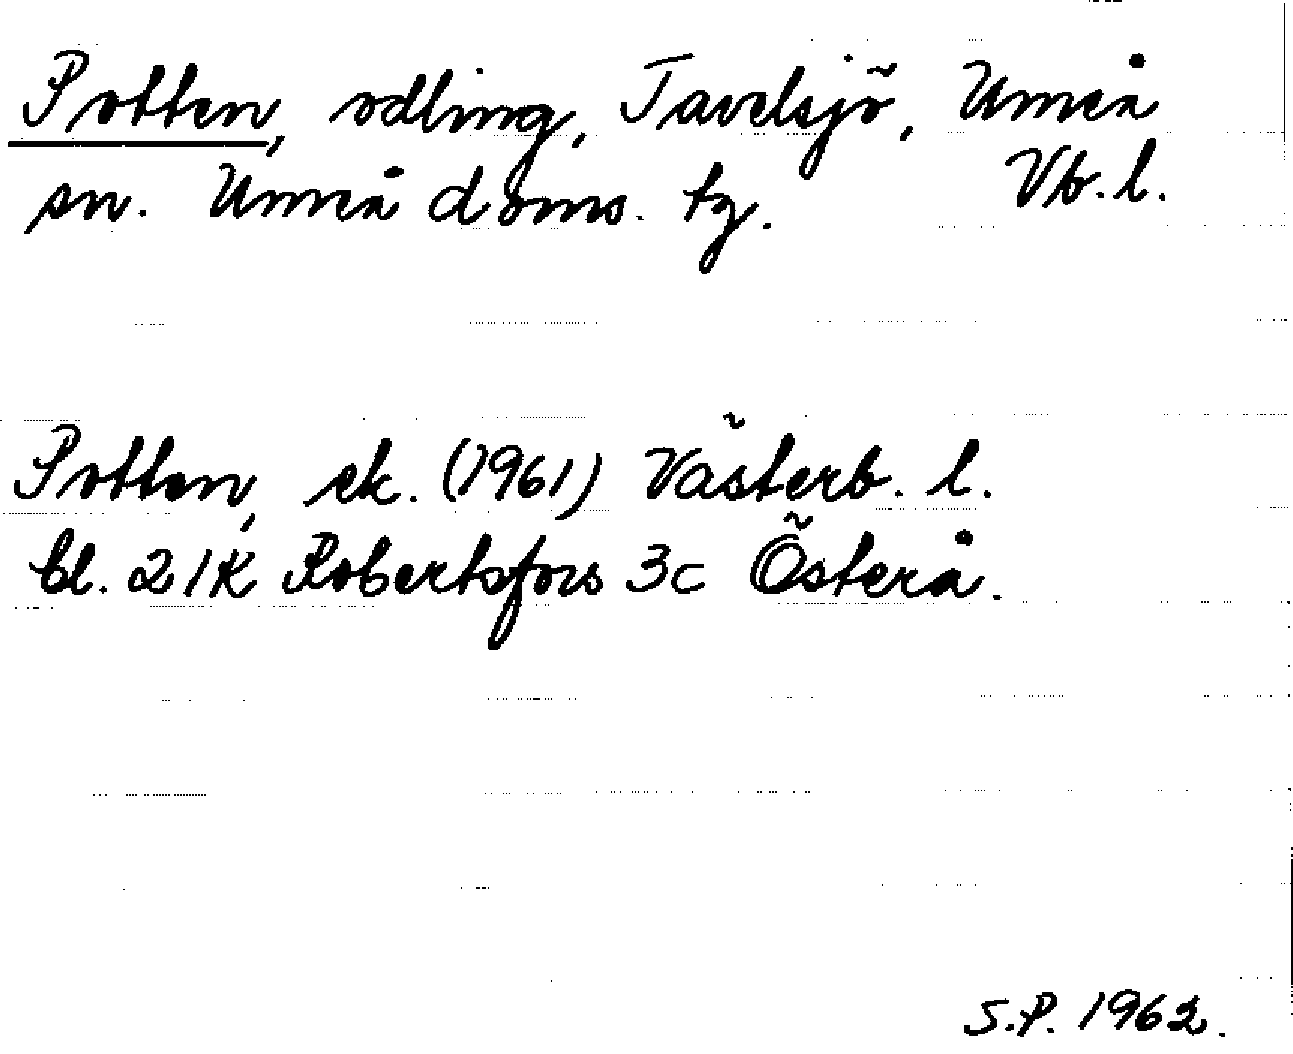 Potten, odling, Tavelsjö, Umeå
sn. Umeå doms. tg. Vb. l.
Potten, ek. (1961) Västerb. l.
bl. 21K Robertsfors 3c Österå.
S.P. 1962.